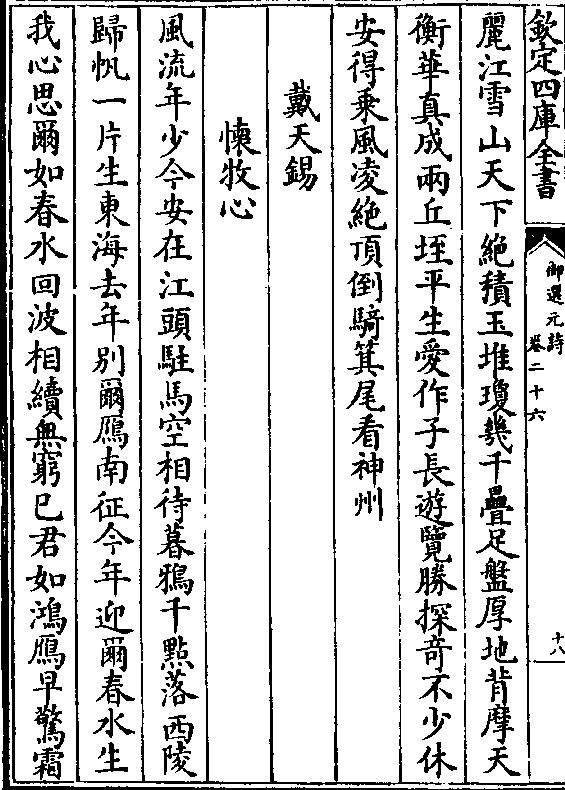 欽定四庫全書
御選元詩
卷二十六
十八
麗江雪山天下絶積玉堆瓊幾千疊足盤厚地背摩天
衡華真成兩丘垤平生愛作子長遊覽勝探竒不少休
安得乗風凌絶頂倒騎箕尾看神州
戴天錫
懐牧心
風流年少今安在江頭駐馬空相待暮鴉千點落西陵
歸帆一片生東海去年别爾鴈南征今年迎爾春水生
我心思爾如春水回波相續無窮已君如鴻鴈早驚霜